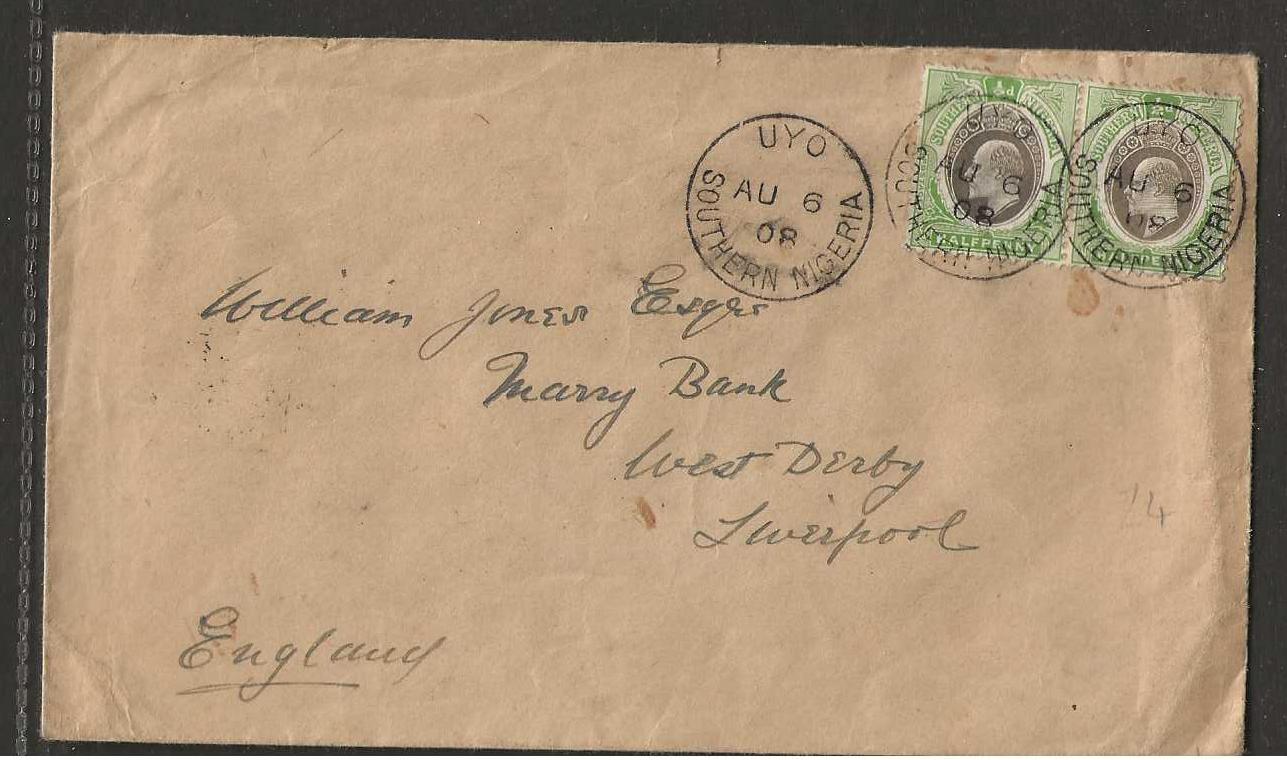 UYO
AU 6
08
SOUTHERN NIGERIA
SOUTHERN NIGERIA
½d
HALFPENNY
UYO
AU 6
08
SOUTHERN NIGERIA
SOUTHERN NIGERIA
½d
UYO
AU 6
08
SOUTHERN NIGERIA
William Jones Esqre
Marry Bank
West Derby
Liverpool
14
England